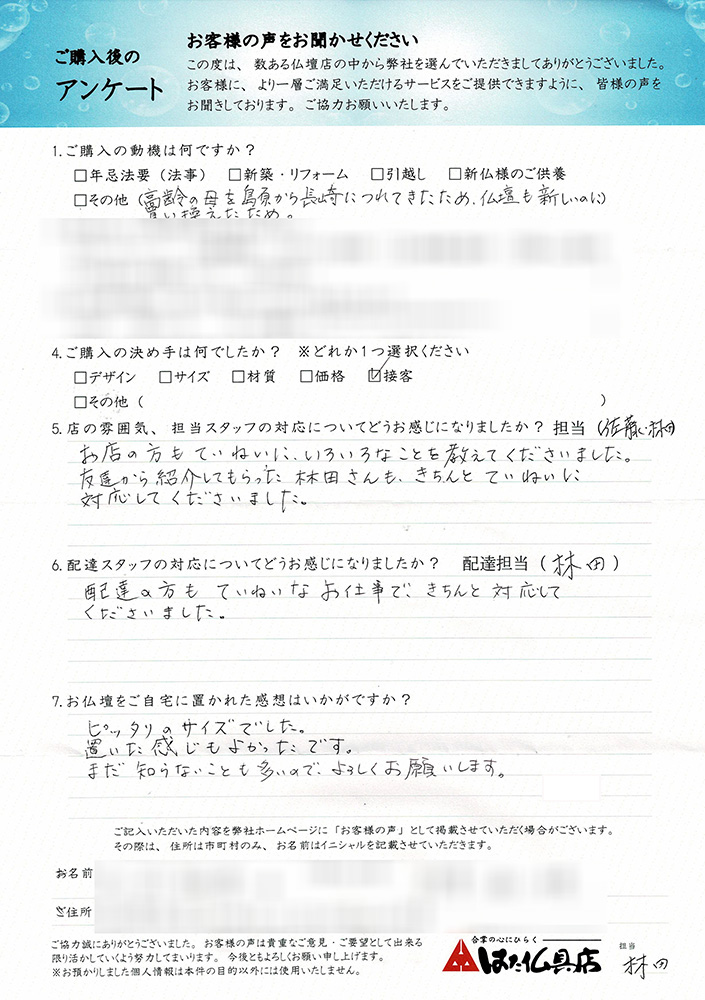 ご購入後の
アンケート
お客様の声をお聞かせください
この度は、数ある仏壇店の中から弊社を選んでいただきましてありがとうございました。
お客様に、より一層ご満足いただけるサービスをご提供できますように、皆様の声を
お聞きしております。ご協力お願いいたします。
1.ご購入の動機は何ですか？
□年忌法要（法事） □新築・リフォーム □引越し □新仏様のご供養
□その他（高齢の母を島原から長崎につれてきたため、仏壇も新しいのに）
買い換えたため。
4.ご購入の決め手は何でしたか？ ※どれか1つ選択ください
□デザイン □サイズ □材質 □価格 ☑接客
□その他（ ）
5.店の雰囲気、担当スタッフの対応についてどうお感じになりましたか？担当（佐藤、林田）
お店の方もていねいに、いろいろなことを教えてくださいました。
友達から紹介してもらった林田さんも、きちんとていねいに
対応してくださいました。
6.配達スタッフの対応についてどうお感じになりましたか？ 配達担当（林田）
配達の方も ていねいなお仕事で、きちんと対応して
くださいました。
7.お仏壇をご自宅に置かれた感想はいかがですか？
ピッタリのサイズでした。
置いた感じもよかったです。
まだ知らないことも多いので、よろしくお願いします。
ご記入いただいた内容を弊社ホームページに「お客様の声」として掲載させていただく場合がございます。
その際は、住所は市町村のみ、お名前はイニシャルを記載させていただきます。
お名前
ご住所
ご協力誠にありがとうございました。お客様の声は貴重なご意見・ご要望として出来る
限り活かしていくよう努力してまいります。今後ともよろしくお願い申し上げます。
※お預かりしました個人情報は本件の目的以外には使用いたしません。
合掌の心にひらく
はた仏具店
担当
林田